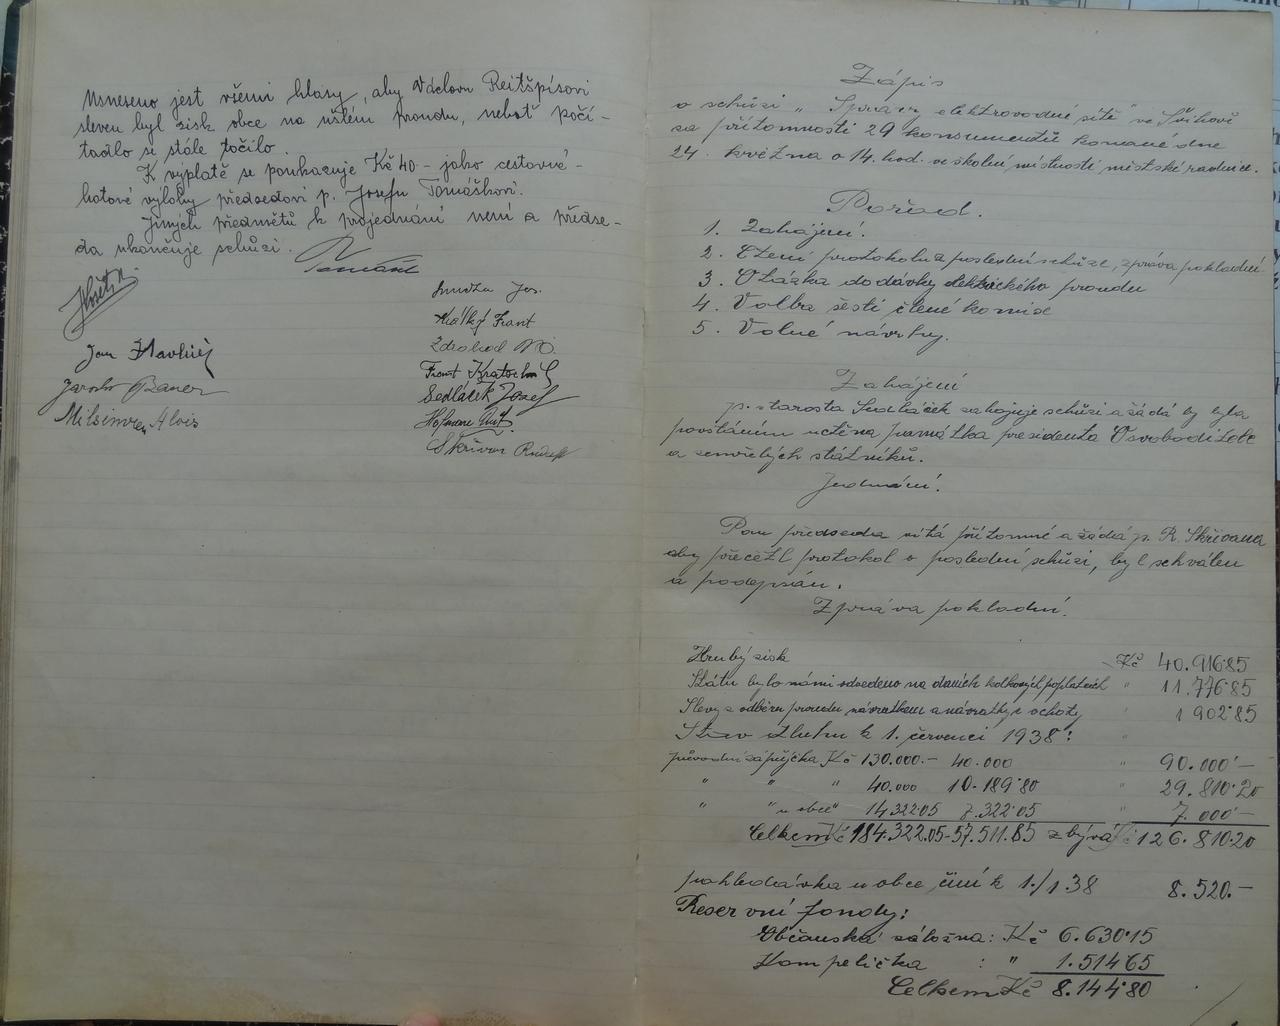 Usneseno jest všemi hlasy, aby Václavu Reitšpísovi
sleven byl zisk obce na ušlém proudu, neboť počí-
tadlo se stále točilo.
K výplatě se poukazuje Kč 40- jako cestovné -
hotové výlohy předsedovi p. Josefu Tomáškovi.
Jiných předmětů k projednání není a předse-
da ukončuje schůzi.
Tomášek
Smrčka Jos.
Malký Frant
Zdrohod
Jan Hlavničj
Frant Kratochvíl
Jaroslav Bauer
Sedláček Jozef
Alois
Hofman Ant.
Skřivan Rudolf
Zápis
o schůzi „Správy elektrovodné sítě" ve Švihově
za přítomnosti 29 konsumentů konané dne
24. května o 14. hod. ve školní místnosti městské radnice.
Pořad.
1. Zahájení.
2. Čtení protokolu z poslední schůze, zpráva pokladní
3. Otázka dodávky elektrického proudu
4. Volba šesti členné komise
5. Volné návrhy.
Zahájení
p. starosta Sedláček zahajuje schůzi a žádá by byla
povstáním uctěna památka presidenta Osvoboditele
a zemřelých státníků.
Jednání.
Pan předseda vítá přítomné a žádá p. R. Skřivana
aby přečetl protokol o poslední schůzi, byl schválen
a podepsán.
Zpráva pokladní.
Hrubý zisk Kč 40.916·85
Státu bylo námi odvedeno na daních kolkových poplatcích " 11.776·85
Slevy z odběru proudu návratkem a návratky z ochoty " 1 902·85
Stav dluhu k 1. červenci 1938: "
původní zápůjčka Kč 130.000.- 40.000 " 90.000·-
" " " 40.000 10.189·80 " 29.810·20
" " u obce" 14322·05 7.322·05 " 7.000·-
Celkem Kč 184.322.05-57.511.85 zbývá Kč 126.810·20
pohledávka u obce činí k 1./1.38 8.520.-
Reservní fondy:
Občanská záložna: Kč 6.630·15
Kampelička : " 1.514·65
Celkem Kč 8.144·80